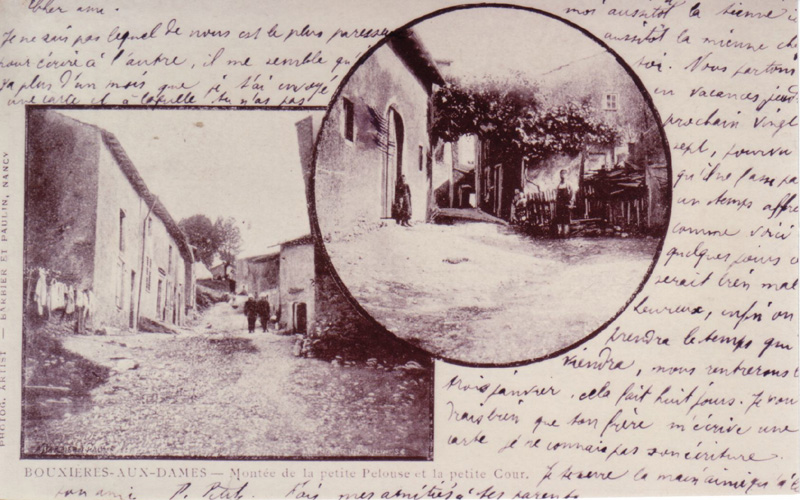 Cher ami.
Je ne sais pas lequel de nous est le plus paresseux
pour écrire à l'autre, il me semble qu'
ya plus d'un mois que je t'ai envoyé
une carte et à laquelle tu n'as pas
moi aussitôt la tienne
aussitôt la mienne
toi. Nous partons
en vacances jeudi
prochain vingt
sept, pourvu
qu'il ne fasse pa
un temps affre
comme voici
quelques jours
serait bien mal
heureux, enfin on
prendra le temps qui
viendra, nous rentrerons l
trois janvier, cela fait huit jours. Je vou
drais bien que ton frère m'écrive une
carte je ne connais pas son écriture.
BOUXIERES-AUX-DAMES — Montée de la petite Pelouse et la petite Cour.
Je te serre la main amie
ton ami P. Petit. Fais mes amitiés à tes parents
PHOTOG. ARTIST — BARBIER ET PAULIN, NANCY